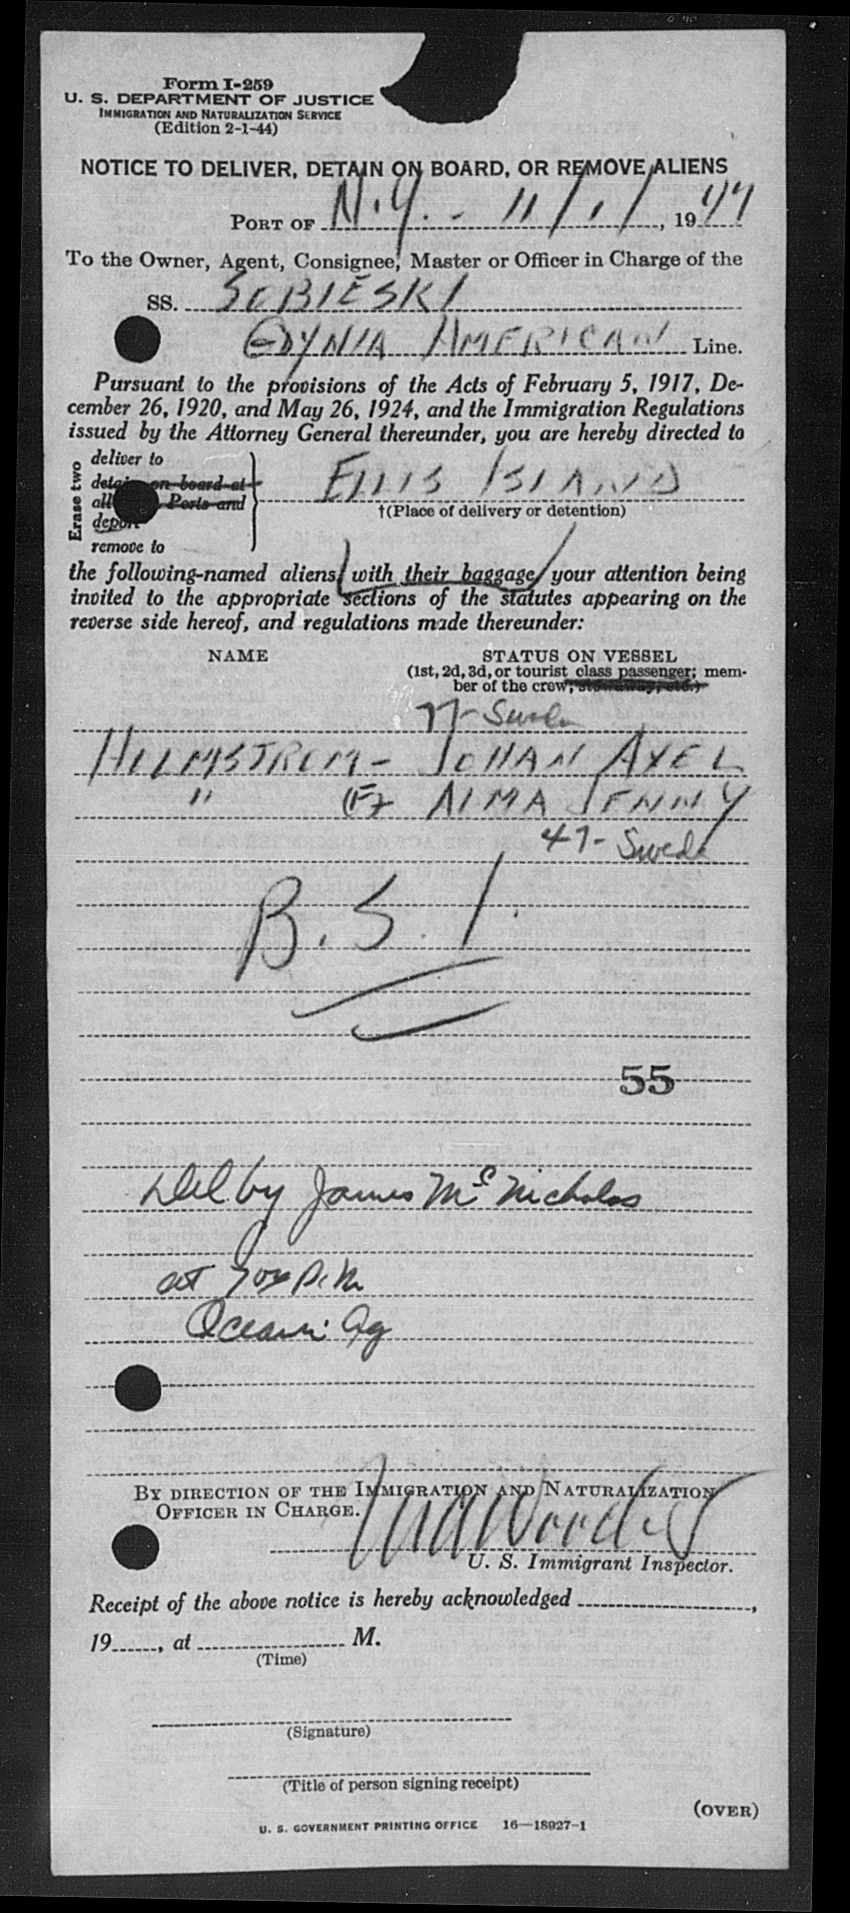 Form I-259
U. S. DEPARTMENT OF JUSTICE
IMMIGRATION AND NATURALIZATION SERVICE
(Edition 2-1-44)
NOTICE TO DELIVER, DETAIN ON BOARD, OR REMOVE ALIENS
PORT OF N.Y. - 11/1/, 1947
To the Owner, Agent, Consignee, Master or Officer in Charge of the
SS. SOBIESKI
GDYNIA AMERICAN Line.
Pursuant to the provisions of the Acts of February 5, 1917, De-
cember 26, 1920, and May 26, 1924, and the Immigration Regulations
issued by the Attorney General thereunder, you are hereby directed to
Erase two
deliver to
detain on board at
all Ports and
deport
remove to
ELLIS ISLAND
†(Place of delivery or detention)
the following-named aliens with their baggage your attention being
invited to the appropriate sections of the statutes appearing on the
reverse side hereof, and regulations made thereunder:
NAME STATUS ON VESSEL
(1st, 2d, 3d, or tourist class passenger; mem-
ber of the crew; stowaway, etc.)
77- Swede
HOLMSTROM - JOHAN AXEL
" (F) ALMA JENNY
47- Swede
B. S. I.
55
Del by James McNicholas
at P.M
By DIRECTION OF THE IMMIGRATION AND NATURALIZATION
OFFICER IN CHARGE.
U. S. Immigrant Inspector.
Receipt of the above notice is hereby acknowledged ,
19 , at M.
(Time)
(Signature)
(Title of person signing receipt)
(OVER)
U. S. GOVERNMENT PRINTING OFFICE 16—18927-1